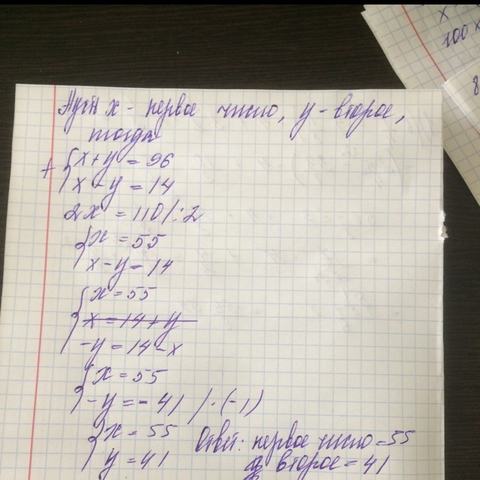 Пусть x - первое число, y - второе,
тогда
+ { x + y = 96
x - y = 14
2x = 110 /:2
{ x = 55
x - y = 14
{ x = 55
x = 14 + y
-y = 14 - x
{ x = 55
-y = -41 / · (-1)
{ x = 55
y = 41
Ответ: первое число = 55
второе = 41
x
100 x
8